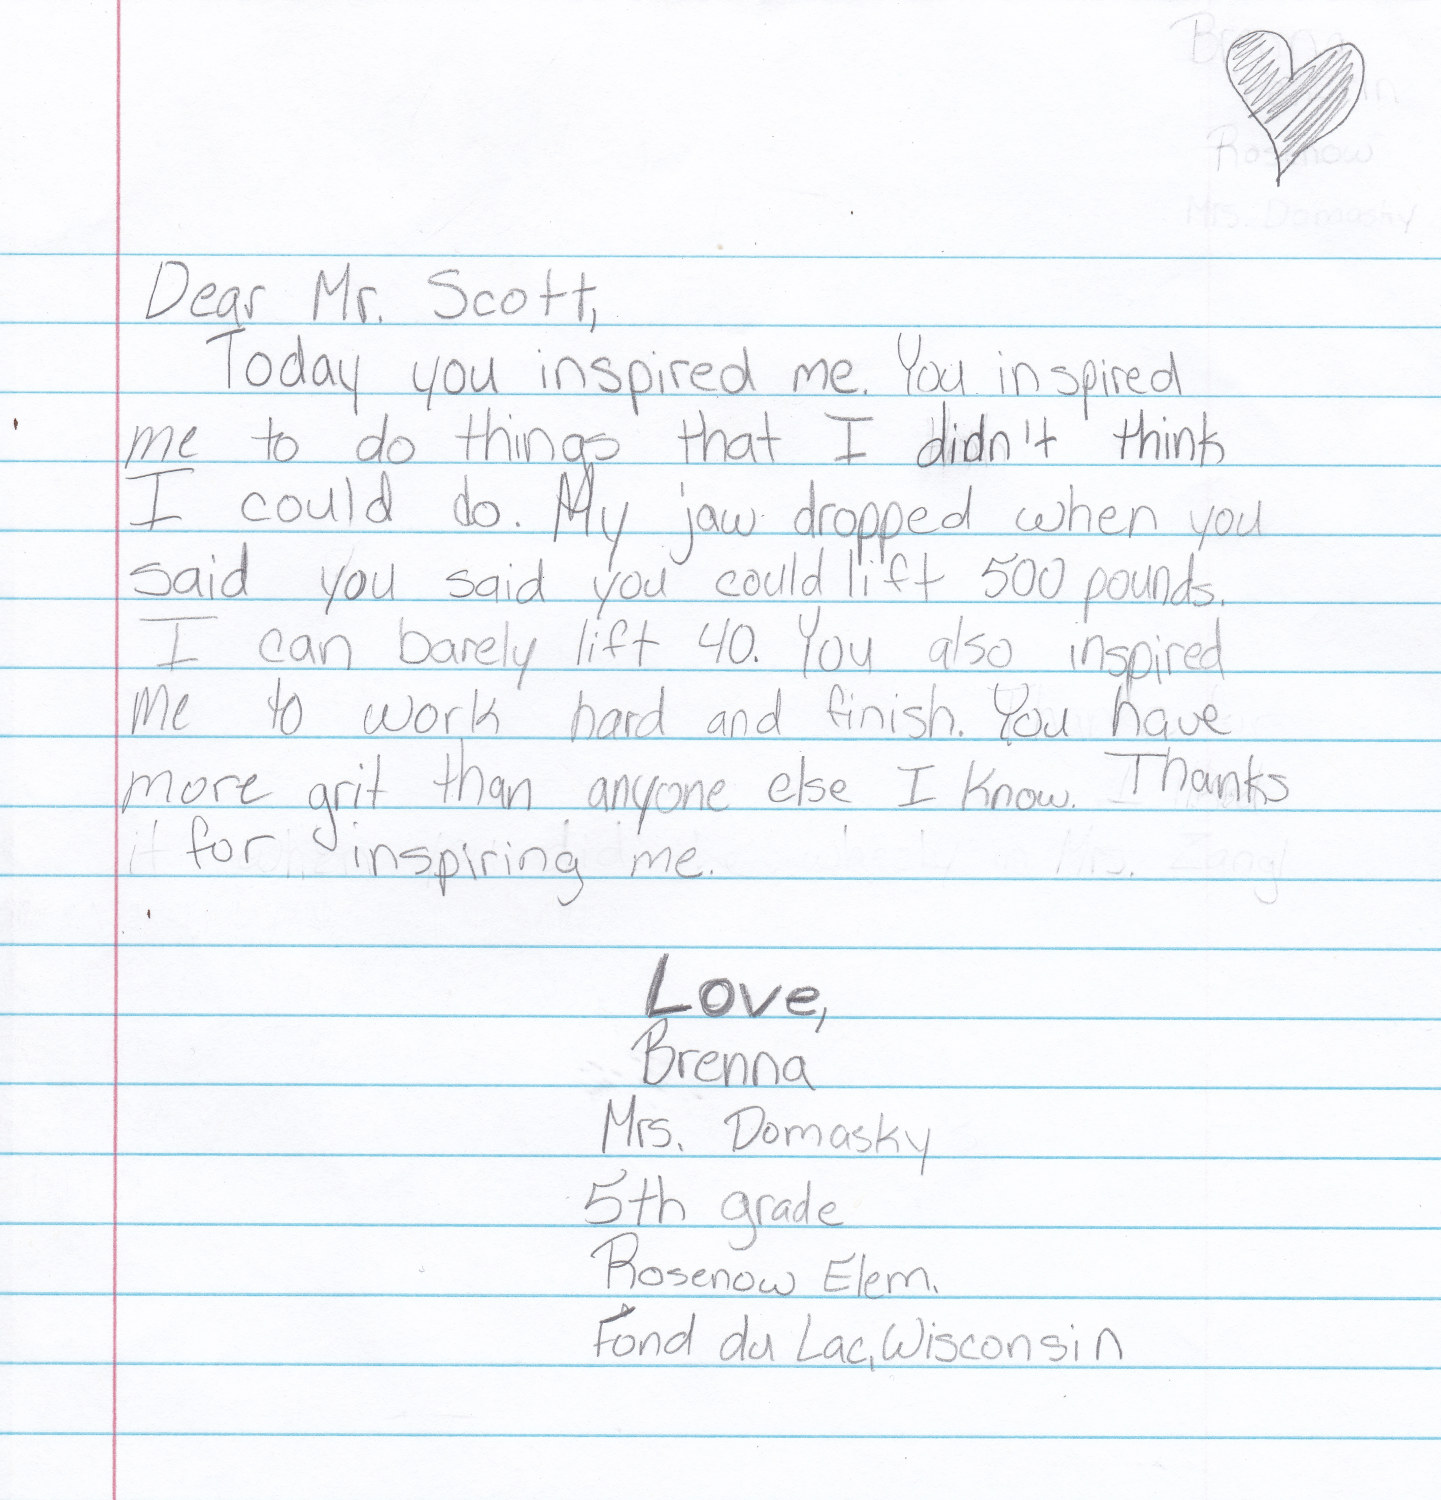 Dear Mr. Scott,
Today you inspired me. You inspired
me to do things that I didn't think
I could do. My jaw dropped when you
said you said you could lift 500 pounds.
I can barely lift 40. You also inspired
me to work hard and finish. You have
more grit than anyone else I know. Thanks
for inspiring me.
Love,
Brenna
Mrs. Domasky
5th grade
Rosenow Elem.
Fond du Lac, Wisconsin